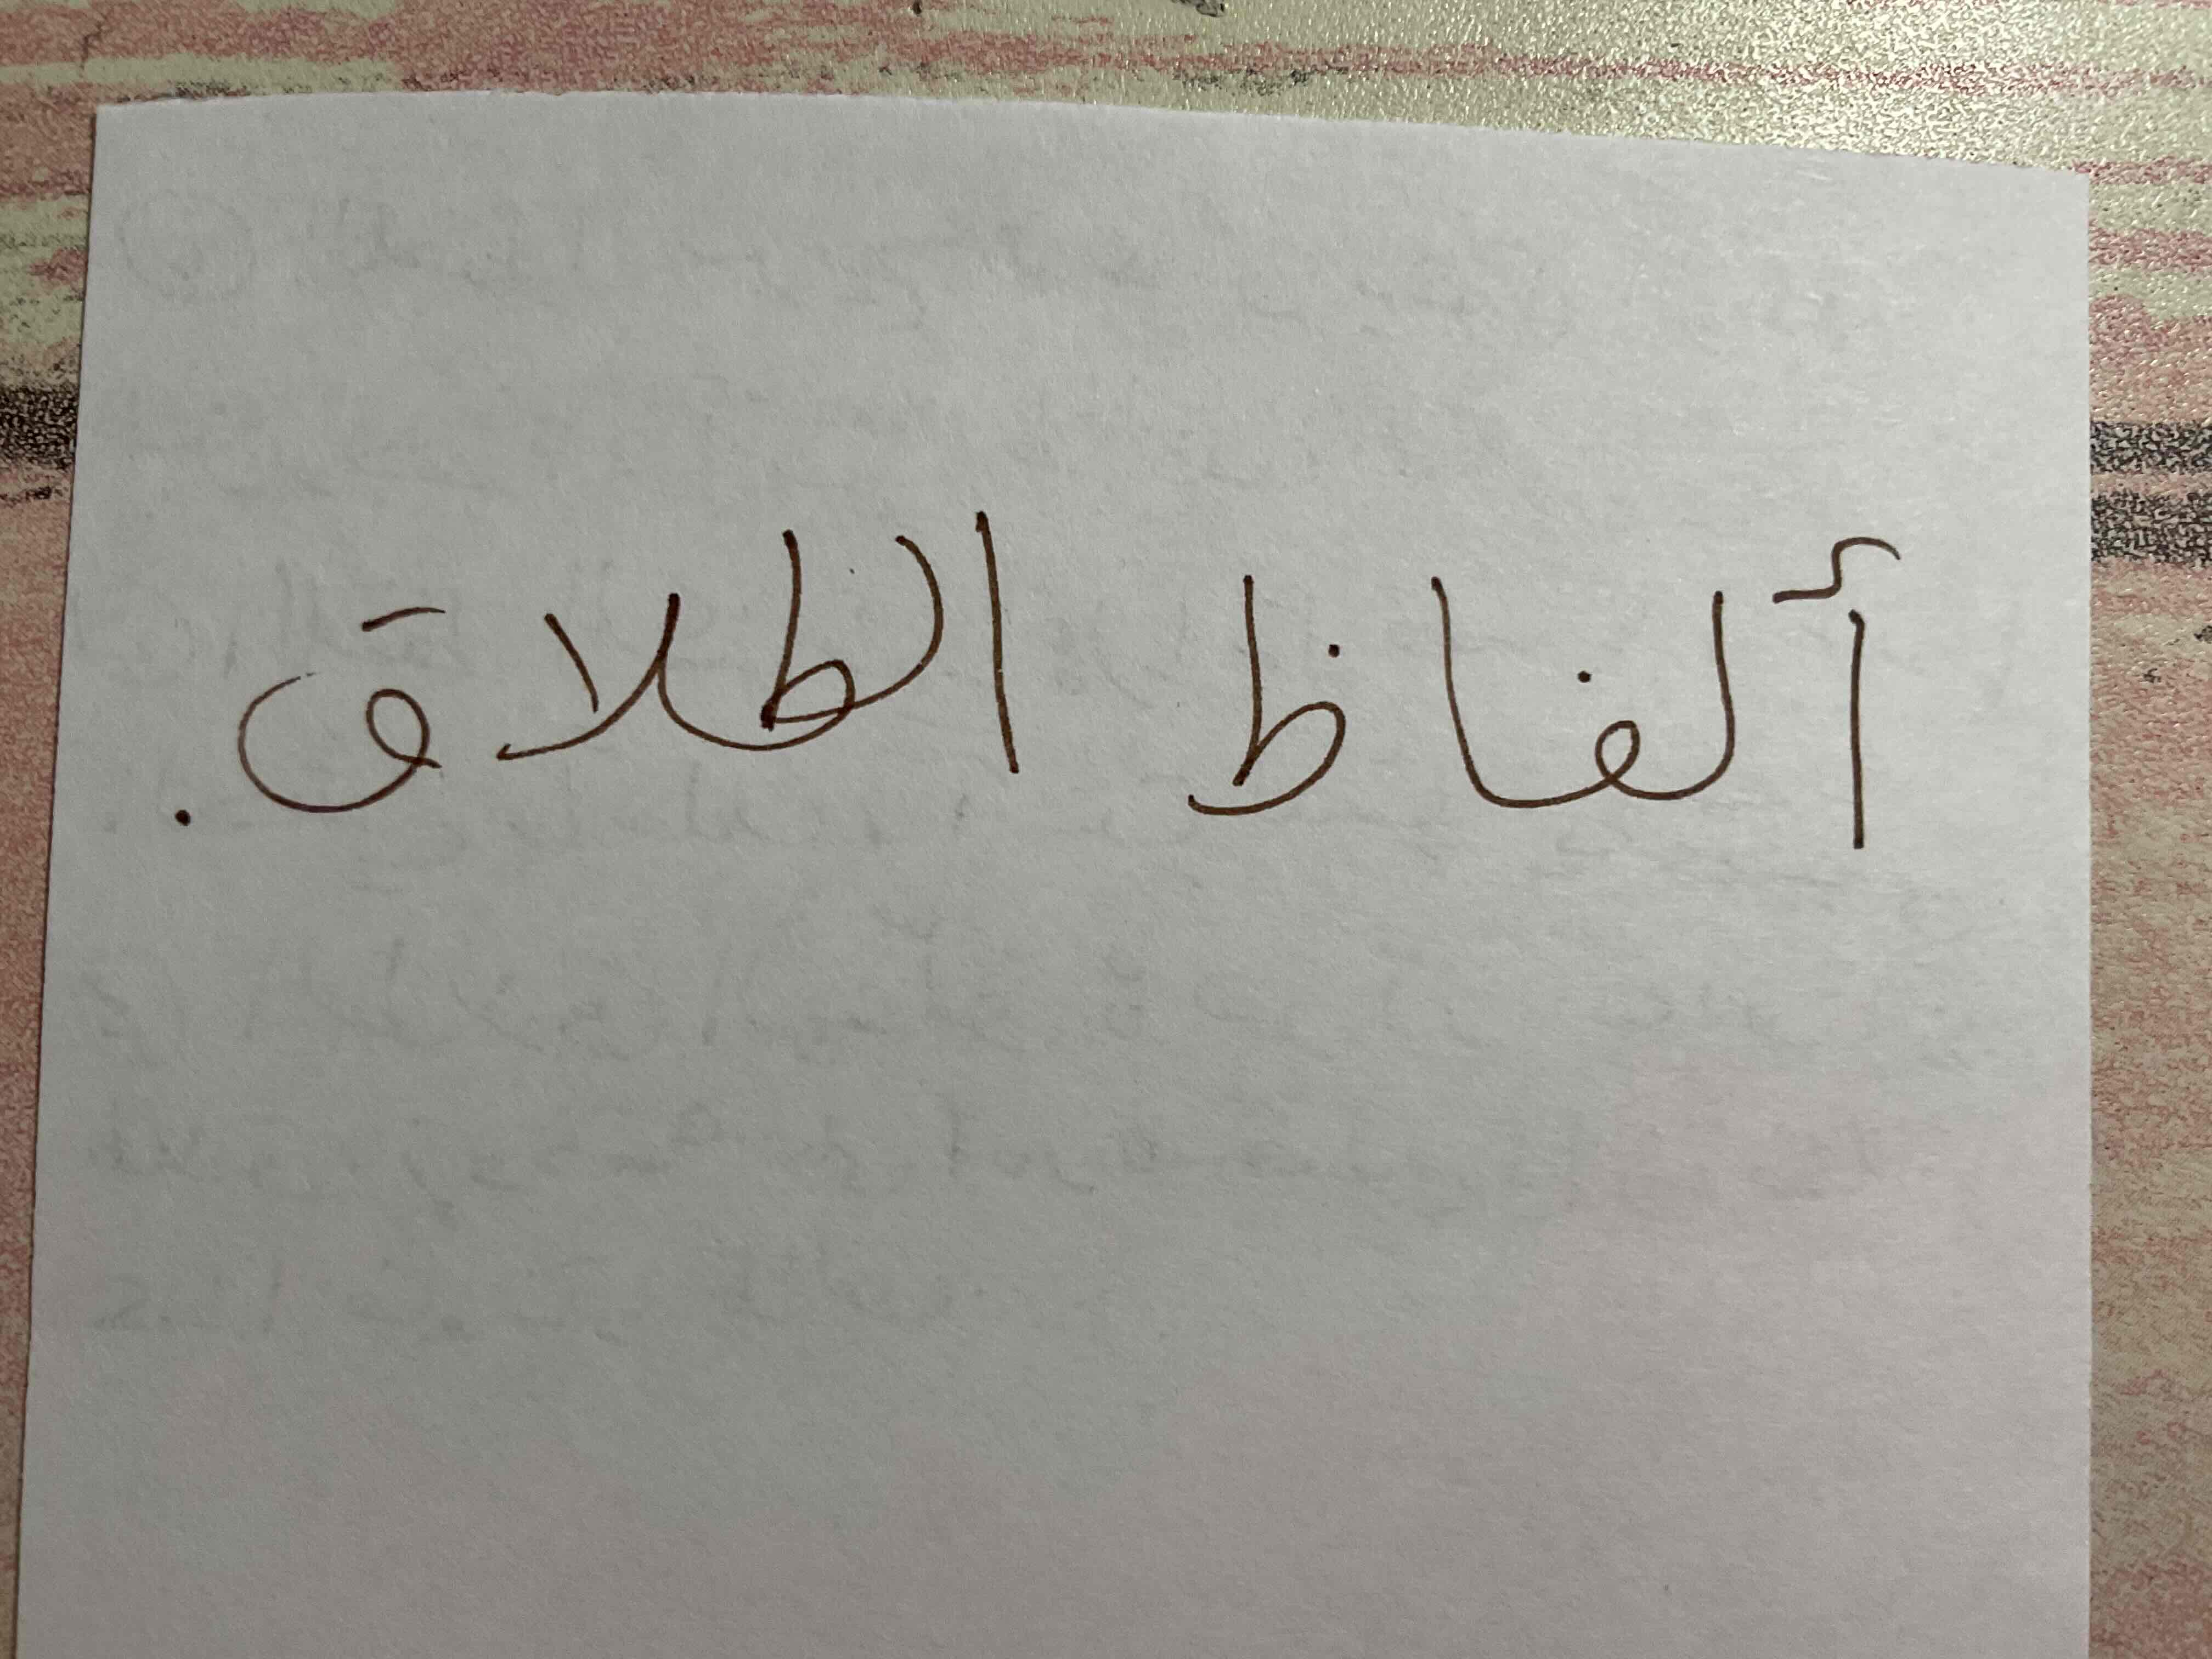 ألفاظ الطلاق.